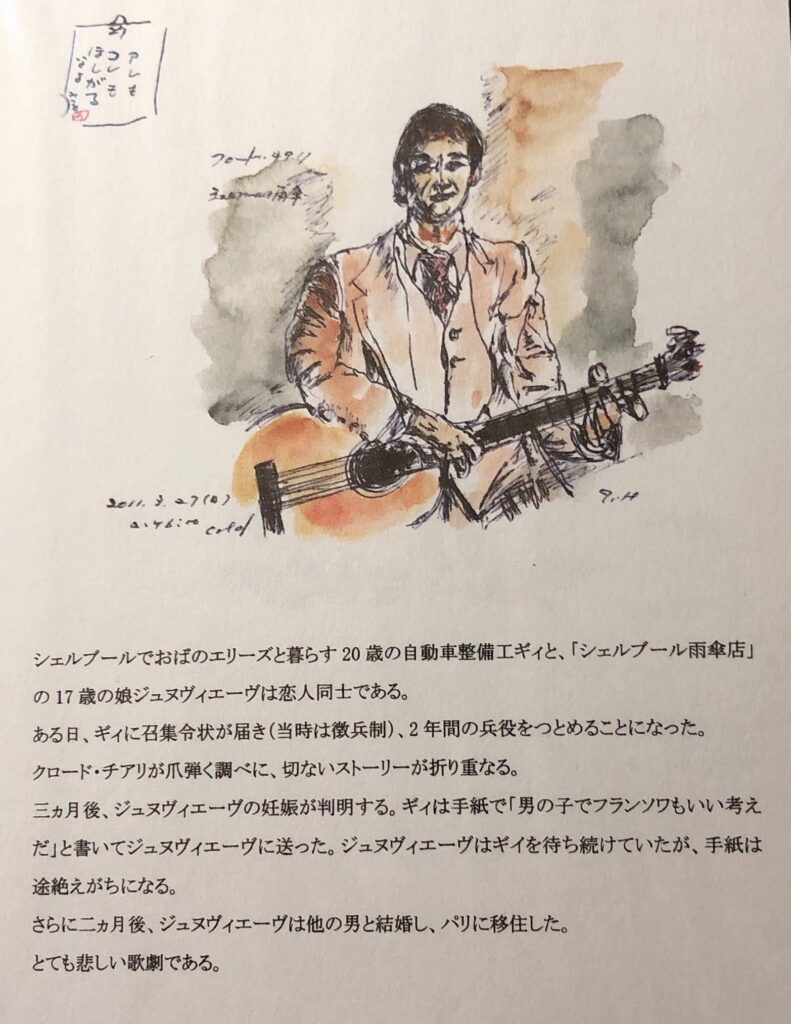 アレも
コレも
ほしがる
なよ
シェルブールの雨傘
2011. 3. 27(日)
cold
シェルブールでおばのエリーズと暮らす 20 歳の自動車整備工ギィと、「シェルブール雨傘店」
の 17 歳の娘ジュヌヴィエーヴは恋人同士である。
ある日、ギィに召集令状が届き(当時は徴兵制)、2 年間の兵役をつとめることになった。
クロード・チアリが爪弾く調べに、切ないストーリーが折り重なる。
三ヵ月後、ジュヌヴィエーヴの妊娠が判明する。ギィは手紙で「男の子でフランソワもいい考え
だ」と書いてジュヌヴィエーヴに送った。ジュヌヴィエーヴはギイを待ち続けていたが、手紙は
途絶えがちになる。
さらに二ヵ月後、ジュヌヴィエーヴは他の男と結婚し、パリに移住した。
とても悲しい歌劇である。